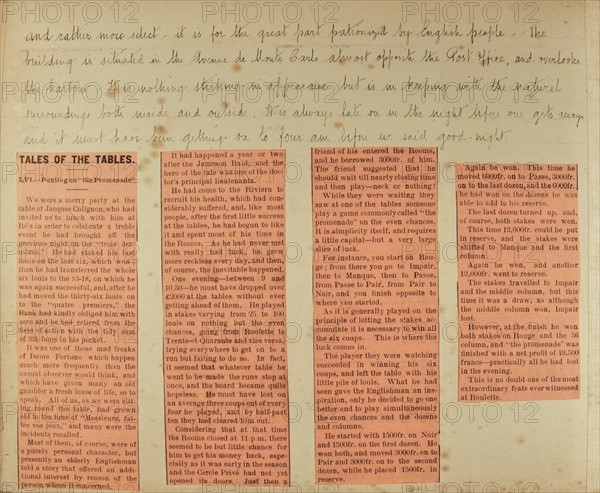 and rather more select - it is for the great part patronized by English people. The
building is situated in the Avenue de Monte Carlo almost opposite the Post Office, and overlooks
the harbour. It is nothing striking in appearance but is in keeping with the natural
surroundings both inside and outside. It is always late on in the night before one gets away
and it must have been getting on to four am before we said good-night.
TALES OF THE TABLES.
LVI.—Punting on "the Promenade"
We were a merry party at the
table of Jacques Colignon, who had
invited us to lunch with him at
Ré's in order to celebrate a treble
event he had brought off the
previous night on the "trois der
niers." He had staked his last
louis on the last six, which won
then he had transferred the whole
six louis to the 13-18, on which he
was again successful, and, after he
had moved the thirty-six louis on
to the "quatre premiers," the
Bank had kindly obliged him with
zero and he had retired from the
field of action with the tidy sum
of 324 louis in his pocket.
It was one of those mad freaks
of Dame Fortune which happen
much more frequently than the
casual observer would think, and
which have given many an old
gambler a fresh lease of life, so to
speak. All of us, as we were sit-
ting round the table, had grown
old to the tune of "Messieurs, fai-
tes vos jeux," and many were the
incidents recalled.
Most of them, of course, were of
a purely personal character, but
presently an elderly Englishman
told a story that offered an addi-
tional interest by reason of the
person whom it concerned.
It had happened a year or two
after the Jameson Raid, and the
hero of the tale was one of the doc-
tor's principal lieutenants.
He had come to the Riviera to
recruit his health, which had con-
siderably suffered, and, like most
people, after the first little success
at the tables, he had begun to like
it and spent most of his time in
the Rooms. As he had never met
with really bad luck, he grew
more reckless every day, and then,
of course, the inevitable happened.
One evening—between 9 and
10.30—he must have dropped over
£2000 at the tables without ever
getting ahead of them. He played
in stakes varying from 25 to 100
louis on nothing but the even
chances, going from Roulette to
Trente-et-Quarante and vice versa,
trying everywhere to get on to a
run but failing to do so. In fact,
it seemed that whatever table he
went to he made the runs stop at
once, and the board became quite
hopeless. He must have lost on
an average three coups out of every
four he played, and by half-past
ten they had cleared him out.
Considering that at that time
the Rooms closed at 11 p.m. there
seemed to be but little chance for
him to get his money back, espe-
cially as it was early in the season
and the Cercle Privé had not yet
opened its doors. Just then a
friend of his entered the Rooms,
and he borrowed 3000fr. of him.
The friend suggested that he
should wait till nearly closing time
and then play—neck or nothing!
While they were waiting they
saw at one of the tables someone
play a game commonly called "the
promenade" on the even chances.
It is simplicity itself, and requires
a little capital—but a very large
slice of luck.
For instance, you start on Rou-
ge; from there you go to Impair,
then to Manque, then to Passe,
from Passe to Pair, from Pair to
Noir, and you finish opposite to
where you started.
As it is generally played on the
principle of letting the stakes ac-
cumulate it is necessary to win all
the six coups. This is where the
luck comes in.
The player they were watching
succeeded in winning his six
coups, and left the table with his
little pile of louis. What he had
seen gave the Englishman an ins-
piration, only he decided to go one
better and to play simultaneously
the even chances and the dozens
and columns.
He started with 1500fr. on Noir
and 1500fr. on the first dozen. He
won both, and moved 3000fr. on to
Pair and 3000fr. on to the second
dozen, while he placed 1500fr. in
reserve.
Again he won. This time he
moved 6000fr. on to Passe, 3000fr.
on to the last dozen, and the 6000fr.
he had won on the dozens he was
able to add to his reserve.
The last dozen turned up, and,
of course, both stakes were won.
This time 12,000fr. could be put
in reserve, and the stakes were
shifted to Manque and the first
column.
Again he won, and another
12,000fr. went to reserve.
The stakes travelled to Impair
and the middle column, but this
time it was a draw, as although
the middle column won, Impair
lost.
However, at the finish he won
both stakes on Rouge and the 36
column, and "the promenade" was
finished with a net profit of 49,500
francs—practically all he had lost
in the evening.
This is no doubt one of the most
extraordinary feats ever witnessed
at Roulette.